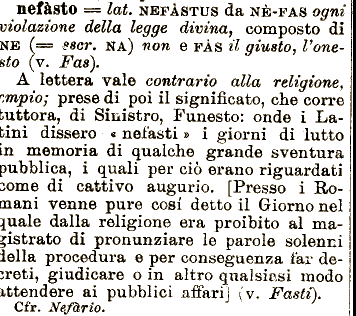 nefàsto = lat. NEFÀSTUS da NÈ-FAS ogni
violazione della legge divina, composto di
NE (= scr. NA) non e FÀS il giusto, l'one-
sto (v. Fas).
A lettera vale contrario alla religione,
empio; prese di poi il significato, che corre
tuttora, di Sinistro, Funesto: onde i La-
tini dissero « nefasti » i giorni di lutto
in memoria di qualche grande sventura
pubblica, i quali per ciò erano riguardati
come di cattivo augurio. [Presso i Ro-
mani venne pure cosí detto il Giorno nel
quale dalla religione era proibito al ma-
gistrato di pronunziare le parole solenni
della procedura e per conseguenza far de-
creti, giudicare o in altro qualsiasi modo
attendere ai pubblici affari] (v. Fasti).
Cfr. Nefàrio.